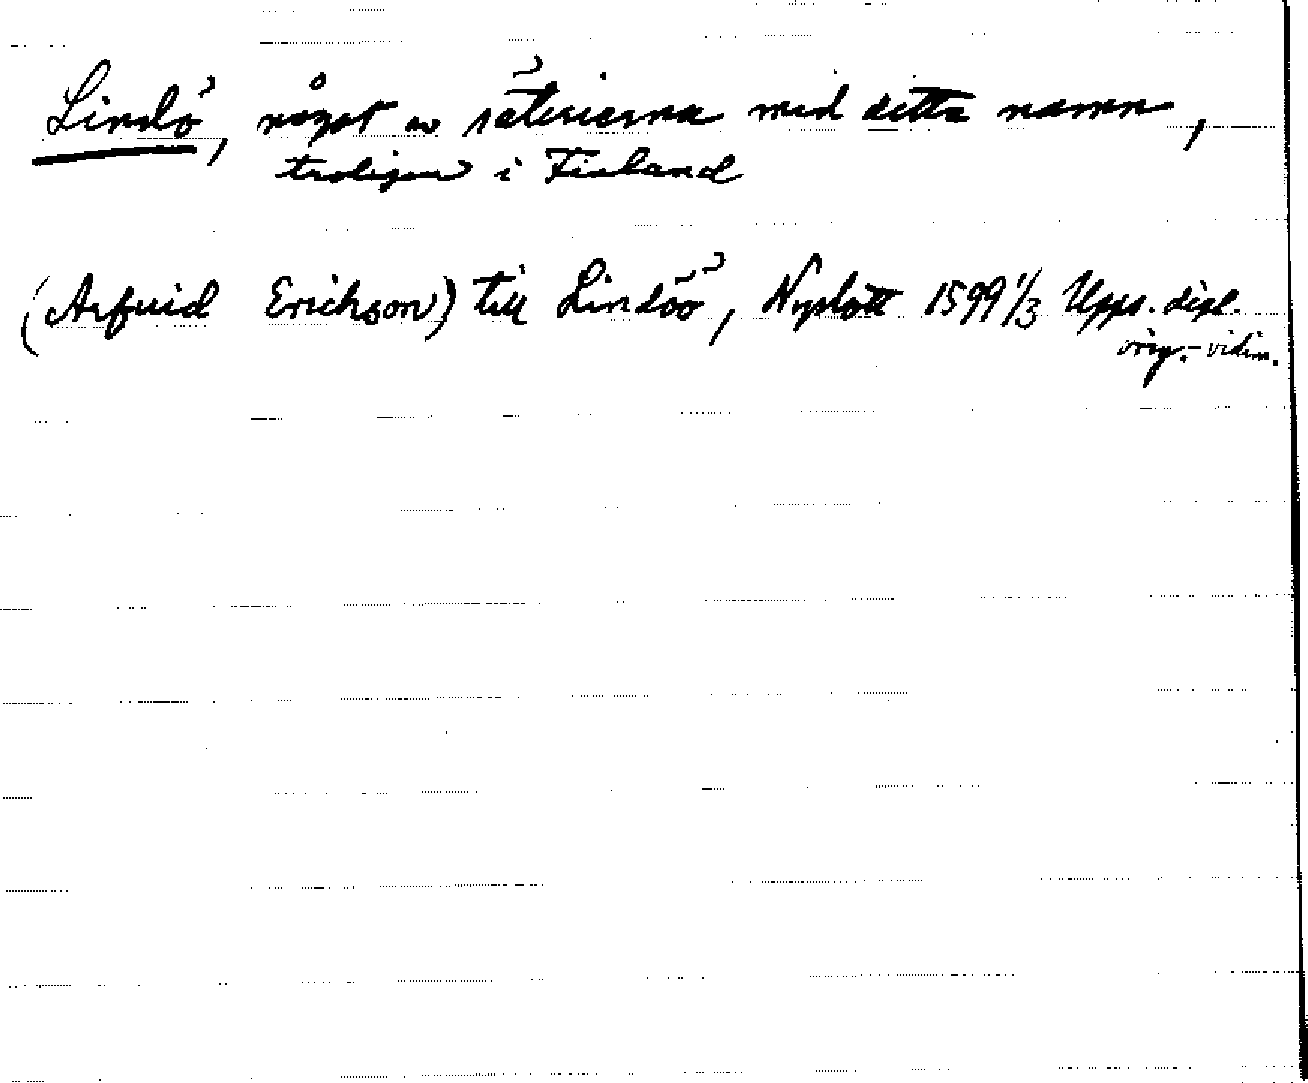 Lindö, något av säterierna med detta namn,
troligen i Finland
(Arfuid Erichson) till Lindöö, Nyslott 1599 1/3 Upps. dipl.
orig.-vidim.